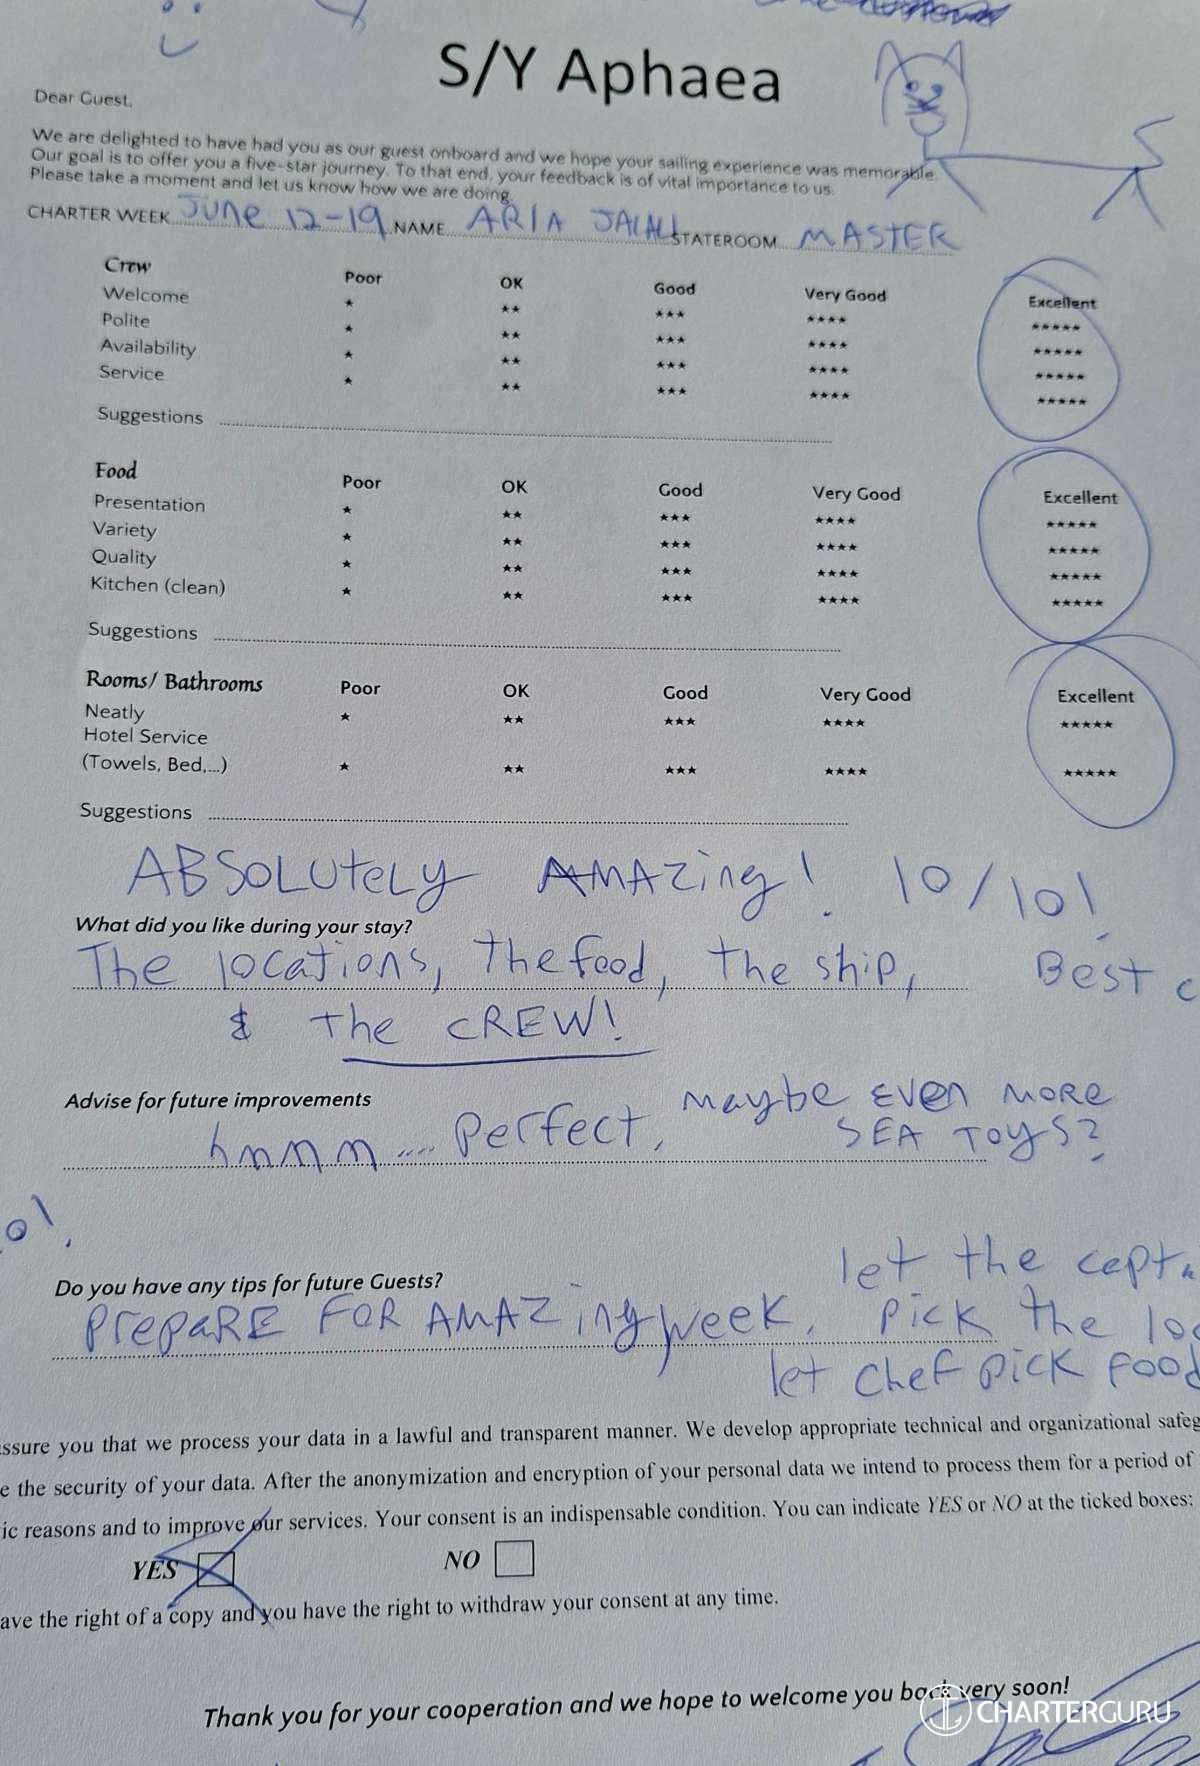 S/Y Aphaea
Dear Guest,
We are delighted to have had you as our guest onboard and we hope your sailing experience was memorable.
Our goal is to offer you a five-star journey. To that end, your feedback is of vital importance to us.
Please take a moment and let us know how we are doing.
CHARTER WEEK JUNE 12-19 NAME ARIA JALALI STATEROOM MASTER
Crew Poor OK Good Very Good Excellent
Welcome ★ ★★ ★★★ ★★★★ ★★★★★
Polite ★ ★★ ★★★ ★★★★ ★★★★★
Availability ★ ★★ ★★★ ★★★★ ★★★★★
Service ★ ★★ ★★★ ★★★★ ★★★★★
Suggestions
Food Poor OK Good Very Good Excellent
Presentation ★ ★★ ★★★ ★★★★ ★★★★★
Variety ★ ★★ ★★★ ★★★★ ★★★★★
Quality ★ ★★ ★★★ ★★★★ ★★★★★
Kitchen (clean) ★ ★★ ★★★ ★★★★ ★★★★★
Suggestions
Rooms/ Bathrooms Poor OK Good Very Good Excellent
Neatly ★ ★★ ★★★ ★★★★ ★★★★★
Hotel Service
(Towels, Bed,...) ★ ★★ ★★★ ★★★★ ★★★★★
Suggestions
ABSOLUTELY AMAZing! 10/10!
What did you like during your stay?
The locations, the food, the ship, Best c
& the CREW!
Advise for future improvements
maybe EVEN MORE
hmmm.... Perfect, SEA TOYS?
Do you have any tips for future Guests?
let the capt
PrepaRE FOR AMAZing week. Pick the loc
let chef pick food
ssure you that we process your data in a lawful and transparent manner. We develop appropriate technical and organizational safeg
e the security of your data. After the anonymization and encryption of your personal data we intend to process them for a period of
ic reasons and to improve our services. Your consent is an indispensable condition. You can indicate YES or NO at the ticked boxes:
YES NO
ave the right of a copy and you have the right to withdraw your consent at any time.
Thank you for your cooperation and we hope to welcome you back very soon!
CHARTERGURU